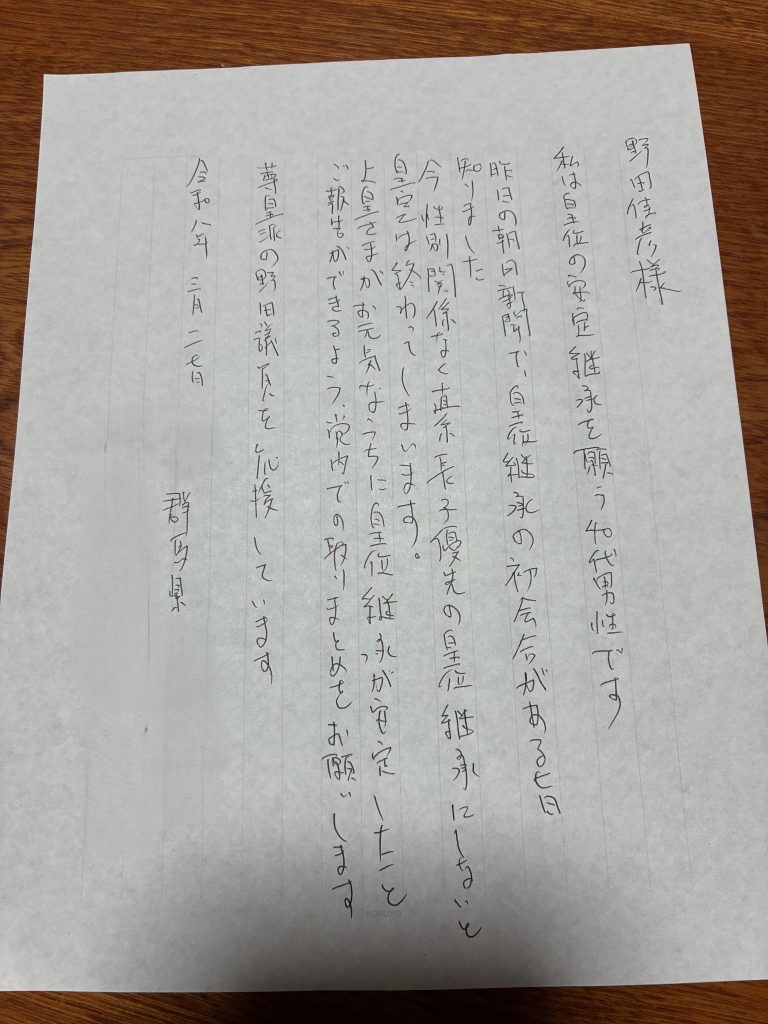 野田佳彦様
私は皇位の安定継承を願う40代男性です
昨日の朝日新聞で、皇位継承の初会合がある旨
知りました
今 性別関係なく直系長子優先の皇位継承にしないと
皇室は終わってしまいます。
上皇さまがお元気なうちに皇位継承が安定したこと
ご報告ができるよう、党内での取りまとめをお願いします
尊皇派の野田議員を応援しています
令和八年 三月 二七日
群馬県
KOKUYO